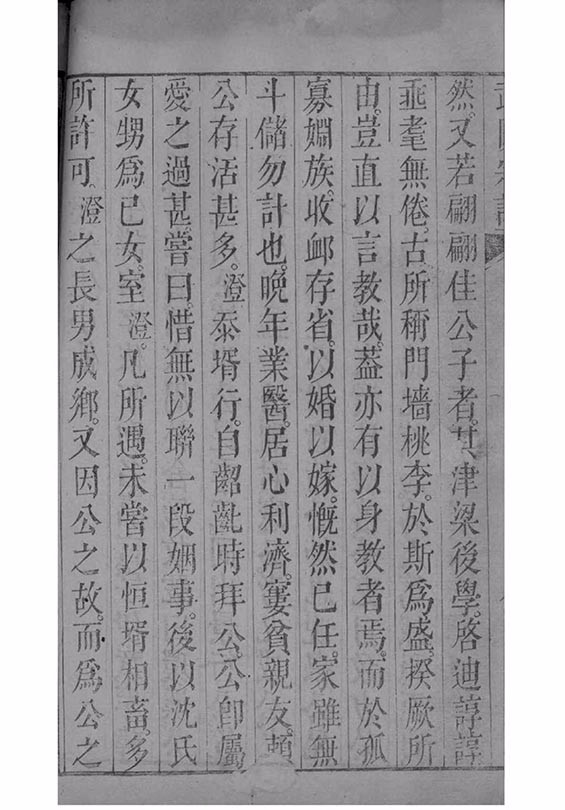 然。又若翩翩佳公子者。其津梁後學。啓迪諄諄
乖耄無倦。古所稱門墻桃李。於斯爲盛。揆厥所
由。豈直以言教哉。葢亦有以身教者焉。而於孤
寡婣族。收衈存省。以婚以嫁。慨然已任。家雖無
斗儲勿計也。晚年業醫。居心利濟。窶貧親友。頼
公存活甚多。澄忝壻行。自齠齔時拜公。公卽屬
愛之過甚。嘗曰。惜無以聯一段姻事。後以沈氏
女甥爲已女。室澄。凡所遇。未嘗以恒壻相畜。多
所許可。澄之長男成鄉。又因公之故。而爲公之